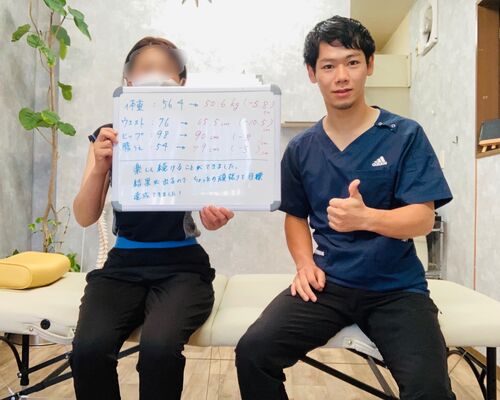 体重 : 56.4 → 50.6 kg (-5.8)
ウエスト : 76 → 65.5 cm (-10.5)
ヒップ : 98 → 90 cm (-8)
腿うら : 54 → 49 cm (-5)
楽しく続けることができました。
結果が出るので、もっとの頑張りで目標
達成できました!
adidas